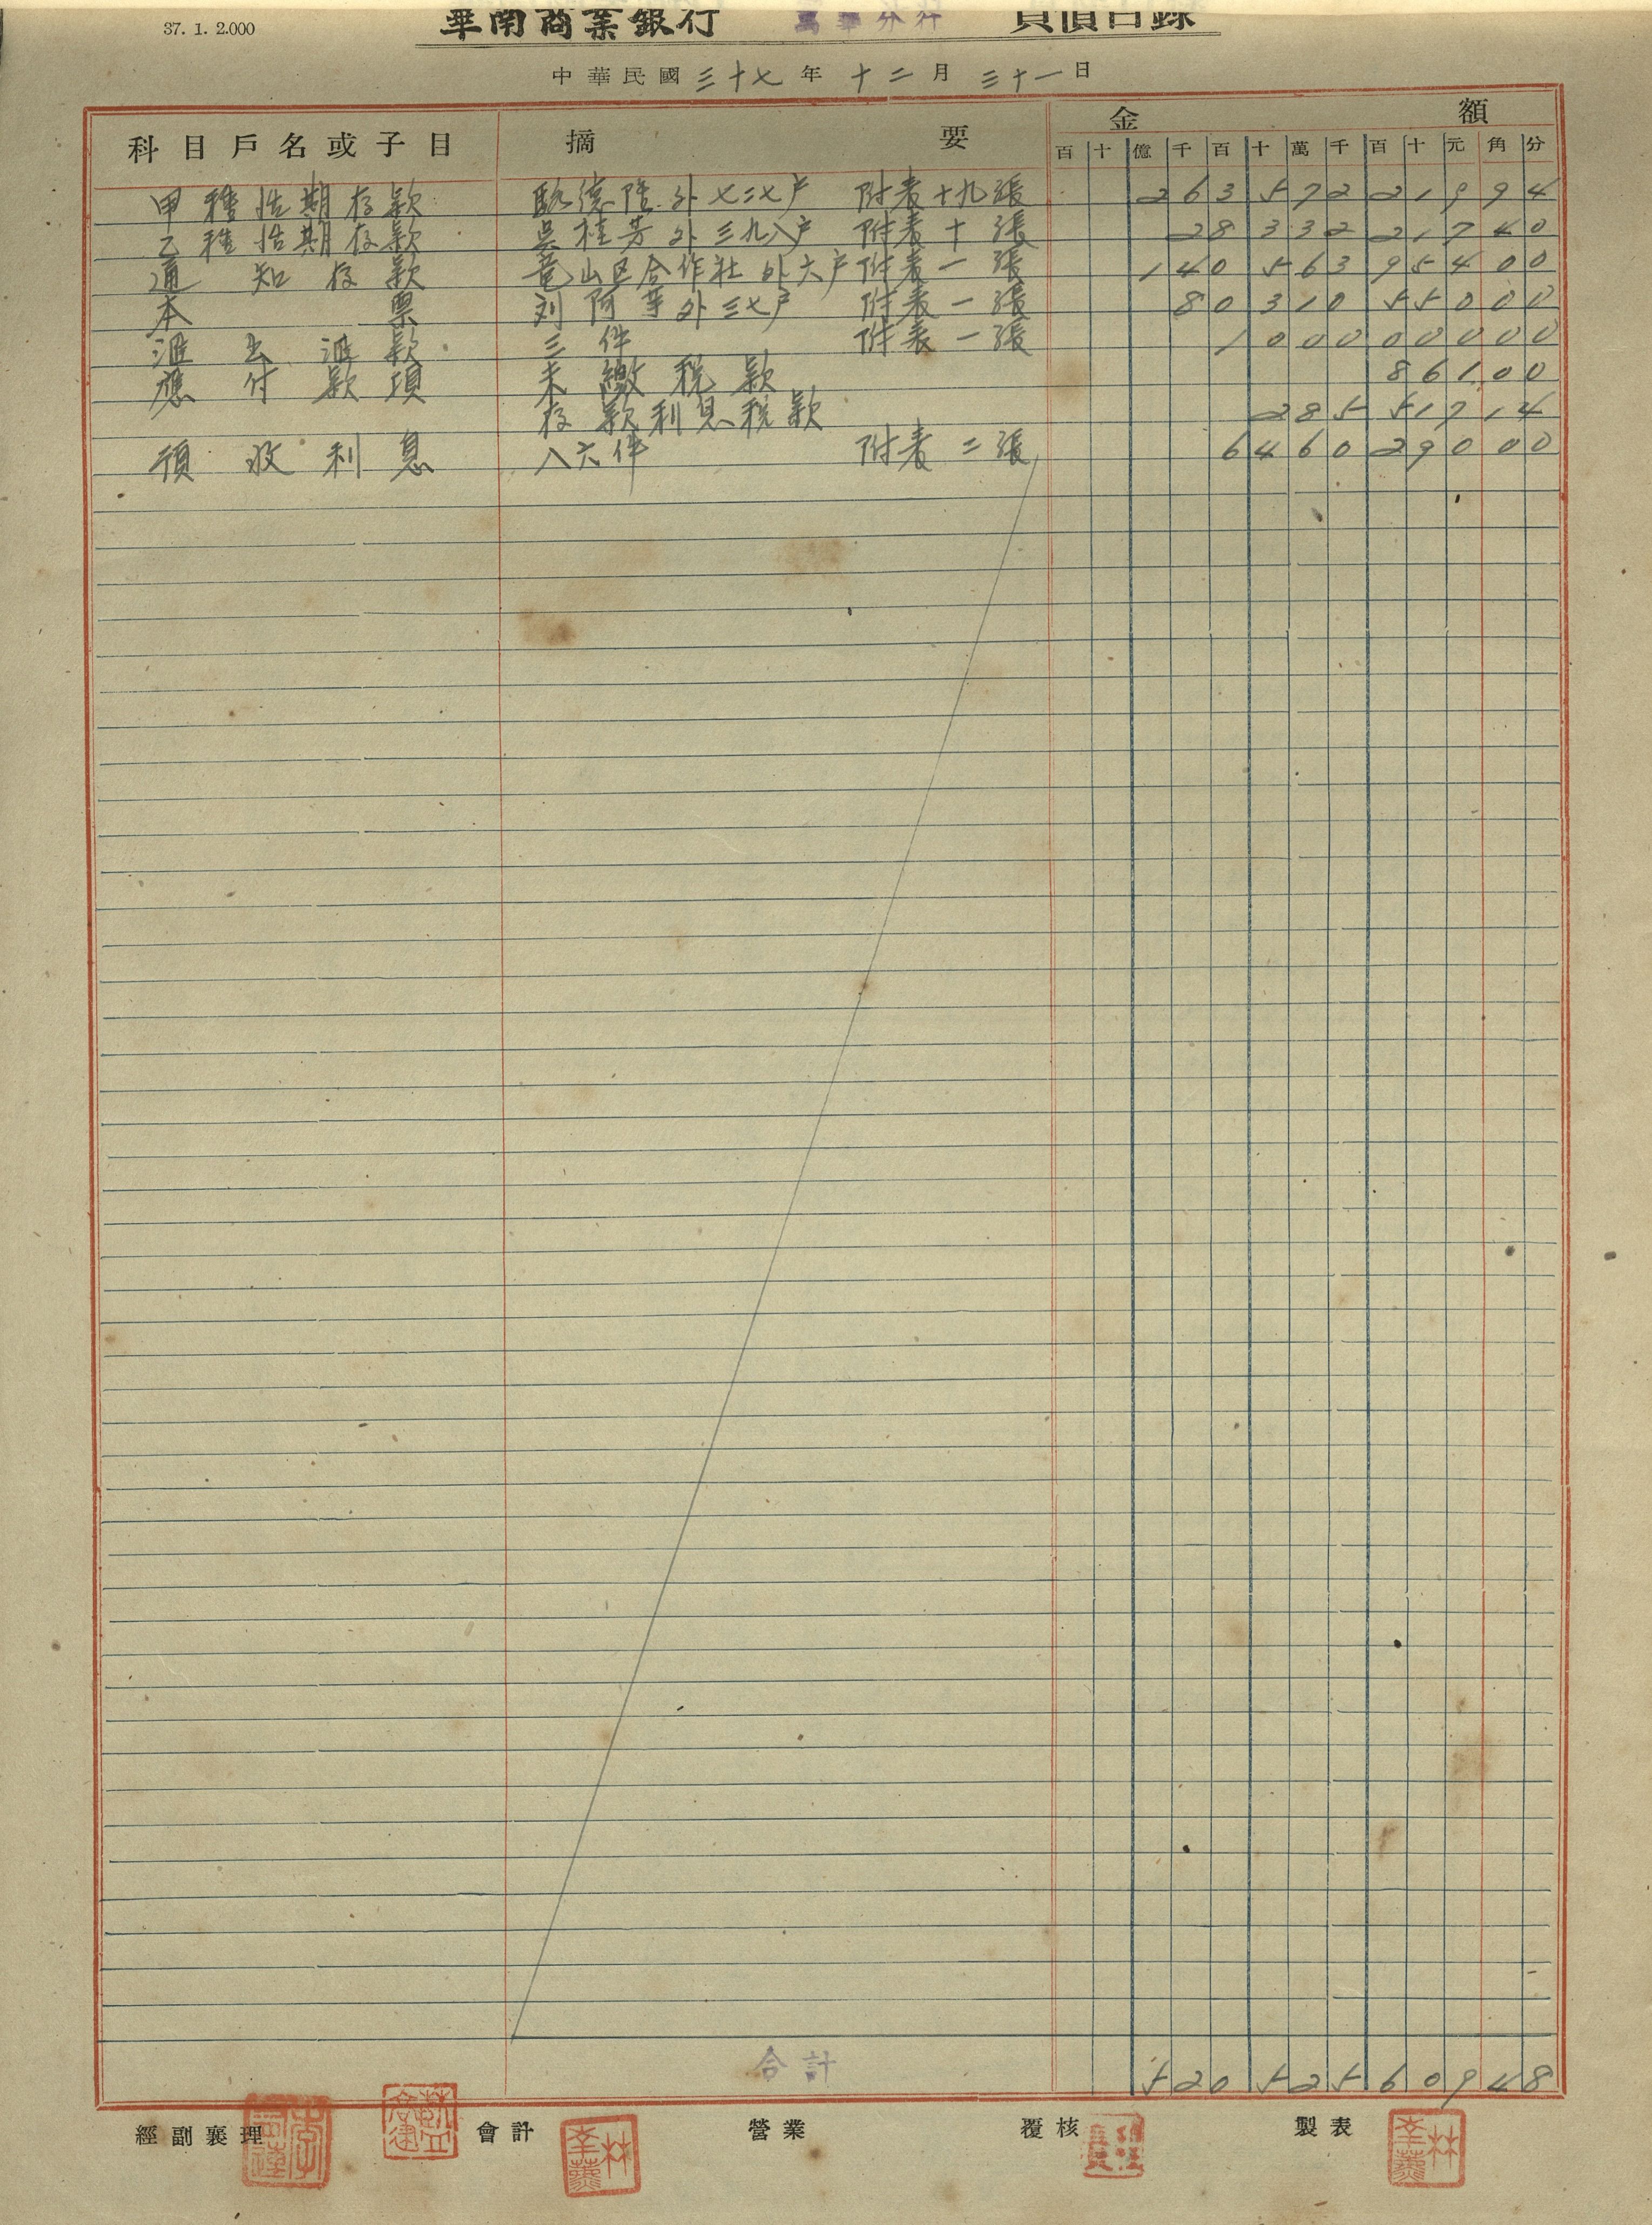 37. 1. 2.000
華南商業銀行 萬華分行 負債目錄
中華民國三十七年十二月三十一日
科目戶名或子目 摘要 金額
百 十 億 千 百 十 萬 千 百 十 元 角 分
甲種活期存款 德陞外七二七户 附表十九張 263 572 219 94
乙種活期存款 吳桂芳外三九八户 附表十張 28 332 217 40
通知存款 竜山区合作社外六户 附表一張 140 563 954 00
本票 刘阿等外三七户 附表一張 80 310 550 00
滙出滙款 三件 附表一張 1 000 000 00
應付款項 未繳稅款 861 00
存款利息稅款 285 517 14
預收利息 八六件 附表二張 6 460 290 00
合計 520 525 609 48
經副襄理 會計 營業 覆核 製表